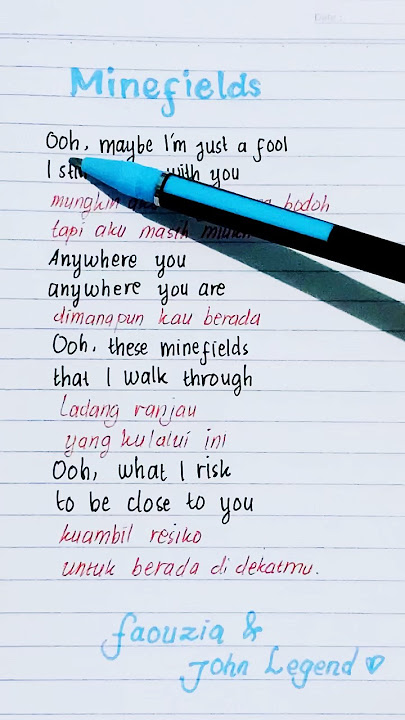 Minefields
Ooh, maybe I'm just a fool
I with you
mungkin bodoh
tapi aku masih
Anywhere you
anywhere you are
dimanapun kau berada
Ooh, these minefields
that I walk through
Ladang ranjau
yang kulalui ini
Ooh, what I risk
to be close to you
kuambil resiko
untuk berada di dekatmu.
faouzia &
John Legend